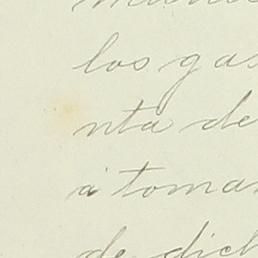 los gas
nta de
á toma
de dich